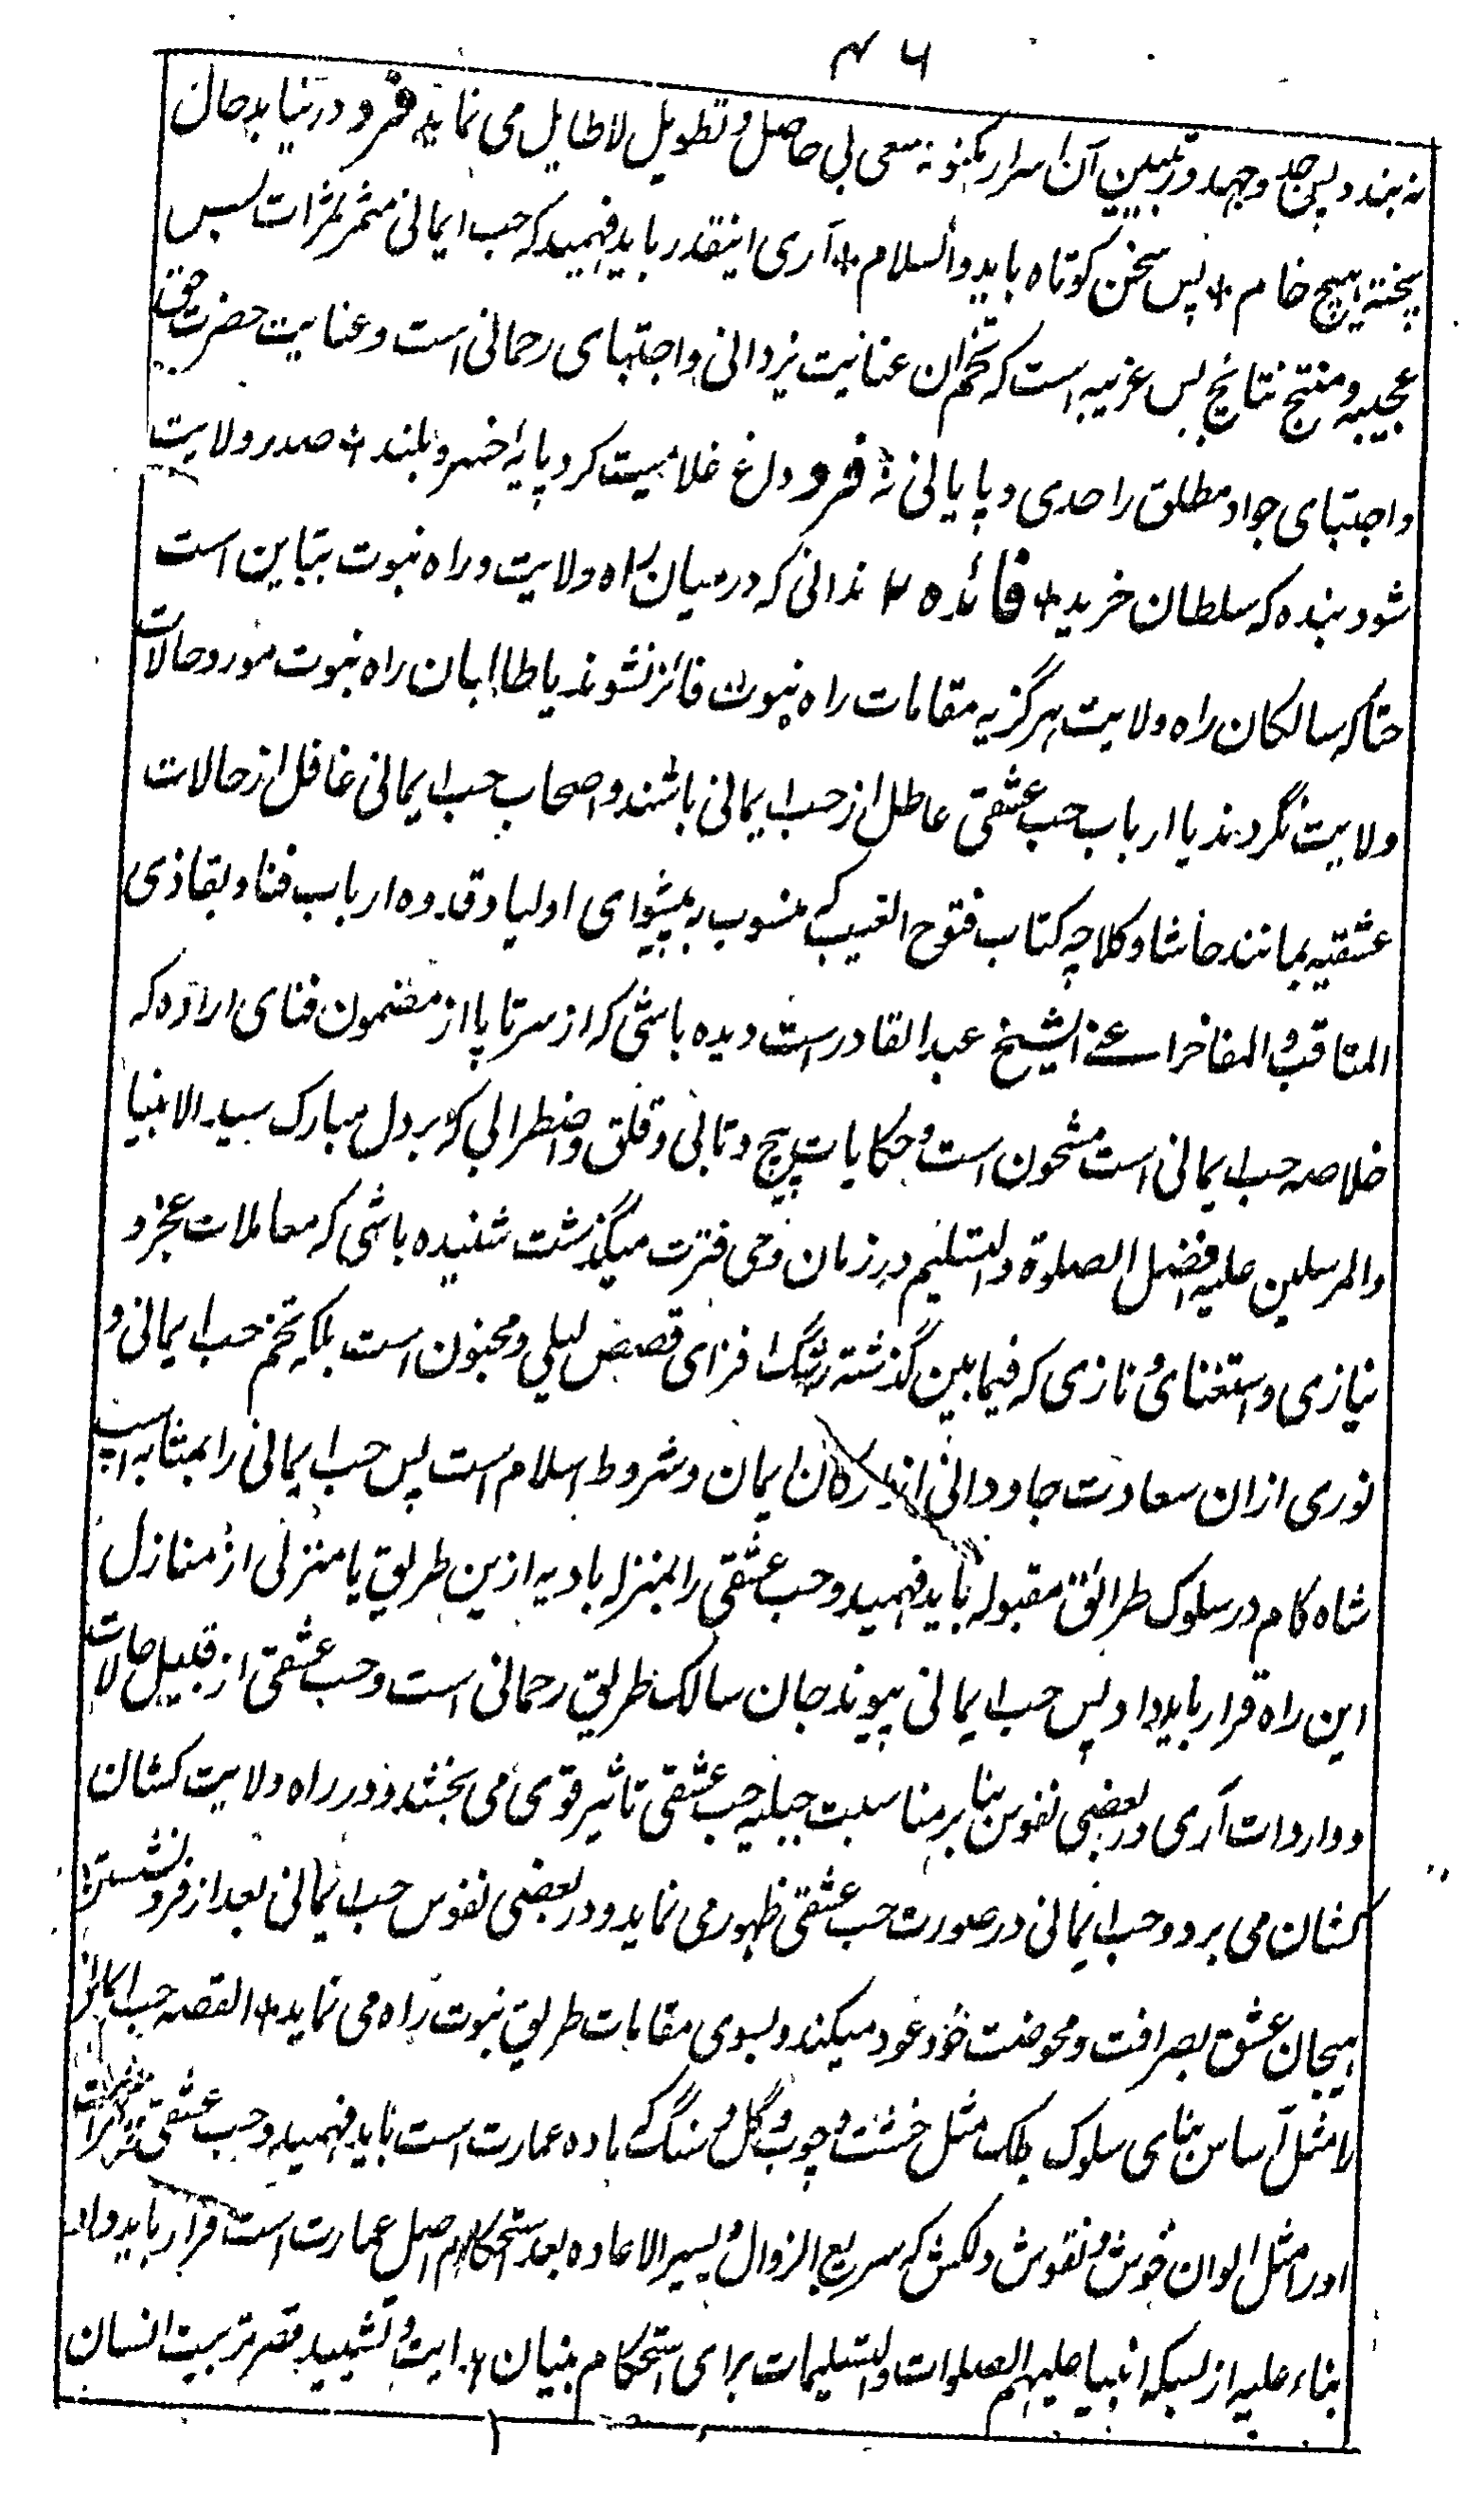 ۴۶
نہ بندد پس جد و جہد در تبیین آن اسرار مکنونہ سعی بی حاصل و تطویل لاطایل می نماید فرد در نیابد حال
پختہ ہیچ خام * پس سخن کوتاہ باید والسلام * آری اینقدر باید فہمید کہ حب ایمانی مثمر ثمرات بس
عجیبہ و منتج نتایج بس غریبہ است کہ تخم آن عنایت یزدانی و اجتبای رحمانی است و عنایت حضرت حق
و اجتبای جواد مطلق را حدی و پایانی نہ فرد داغ غلامیت کرد پایہ خسرو بلند * صدر ولایت
شود بندہ کہ سلطان خرید * فائدہ ۲ ندانی کہ درمیان راہ ولایت و راہ نبوت تباین است
حتا کہ سالکان راہ ولایت ہرگز بہ مقامات راہ نبوت فائز نشوند یا طالبان راہ نبوت مورد حالات
ولایت نگردند یا ارباب حب عشقی عاطل از حب ایمانی باشند و اصحاب حب ایمانی غافل از حالات
عشقیہ بمانند حاشا و کلا چہ کتاب فتوح الغیب کہ منسوب بہ پیشوای اولیا و قدوہ ارباب فنا و بقا ذی
المناقب و المفاخر اعنی الشیخ عبد القادر است دیدہ باشی کہ از سر تا پا از مضمون فنای ارادہ کہ
خلاصہ حب ایمانی است مشحون است و حکایات پیچ و تابی و قلق و اضطرابی کہ بر دل مبارک سید الانبیا
والمرسلین علیہ افضل الصلوۃ والتسلیم در زمان وحی فترت میگذشت شنیدہ باشی کہ معاملات عجز و
نیازی و استغنائ و نازی کہ فیما بین گذشتہ رشک افزای قصص لیلی و مجنون است بلکہ تخم حب ایمانی و
نوری ازان سعادت جاودانی از ارکان ایمان و شروط اسلام است پس حب ایمانی را بمثابہ اسپ
شاہ کام در سلوک طرائق مقبولہ باید فہمید و حب عشقی را بمنزلہ بادیہ ازین طریق یا منزلی از منازل
این راہ قرار باید داد پس حب ایمانی پیوند جان سالک طریق رحمانی است و حب عشقی از قبیل حالات
و واردات آری در بعضی نفوس بنا بر مناسبت جبلیہ حب عشقی تاثیر قوی می بخشد و در راہ ولایت کشان
کشان می برد و حب ایمانی در صورت حب عشقی ظہور می نماید و در بعضی نفوس حب ایمانی بعد از فرو نشستن
ہیجان عشق بصرافت و محوضت خود عود میکند و بسوی مقامات طریق نبوت راہ می نماید * القصہ حب ایمانی
را مثل اساس بنای سلوک بلکہ مثل خشت و چوب و گل و سنگ کہ مادہ عمارت است باید فہمید و حب عشقی و ثمرات
اورا مثل الوان خوش و نقوش دلکش کہ سریع الزوال و یسیر الاعادہ بعد استحکام اصل عمارت است قرار باید داد
بناء علیہ از بسکہ انبیا علیہم الصلوات والتسلیمات برای استحکام بنیان ہدایت و تشیید قصر تربیت انسان